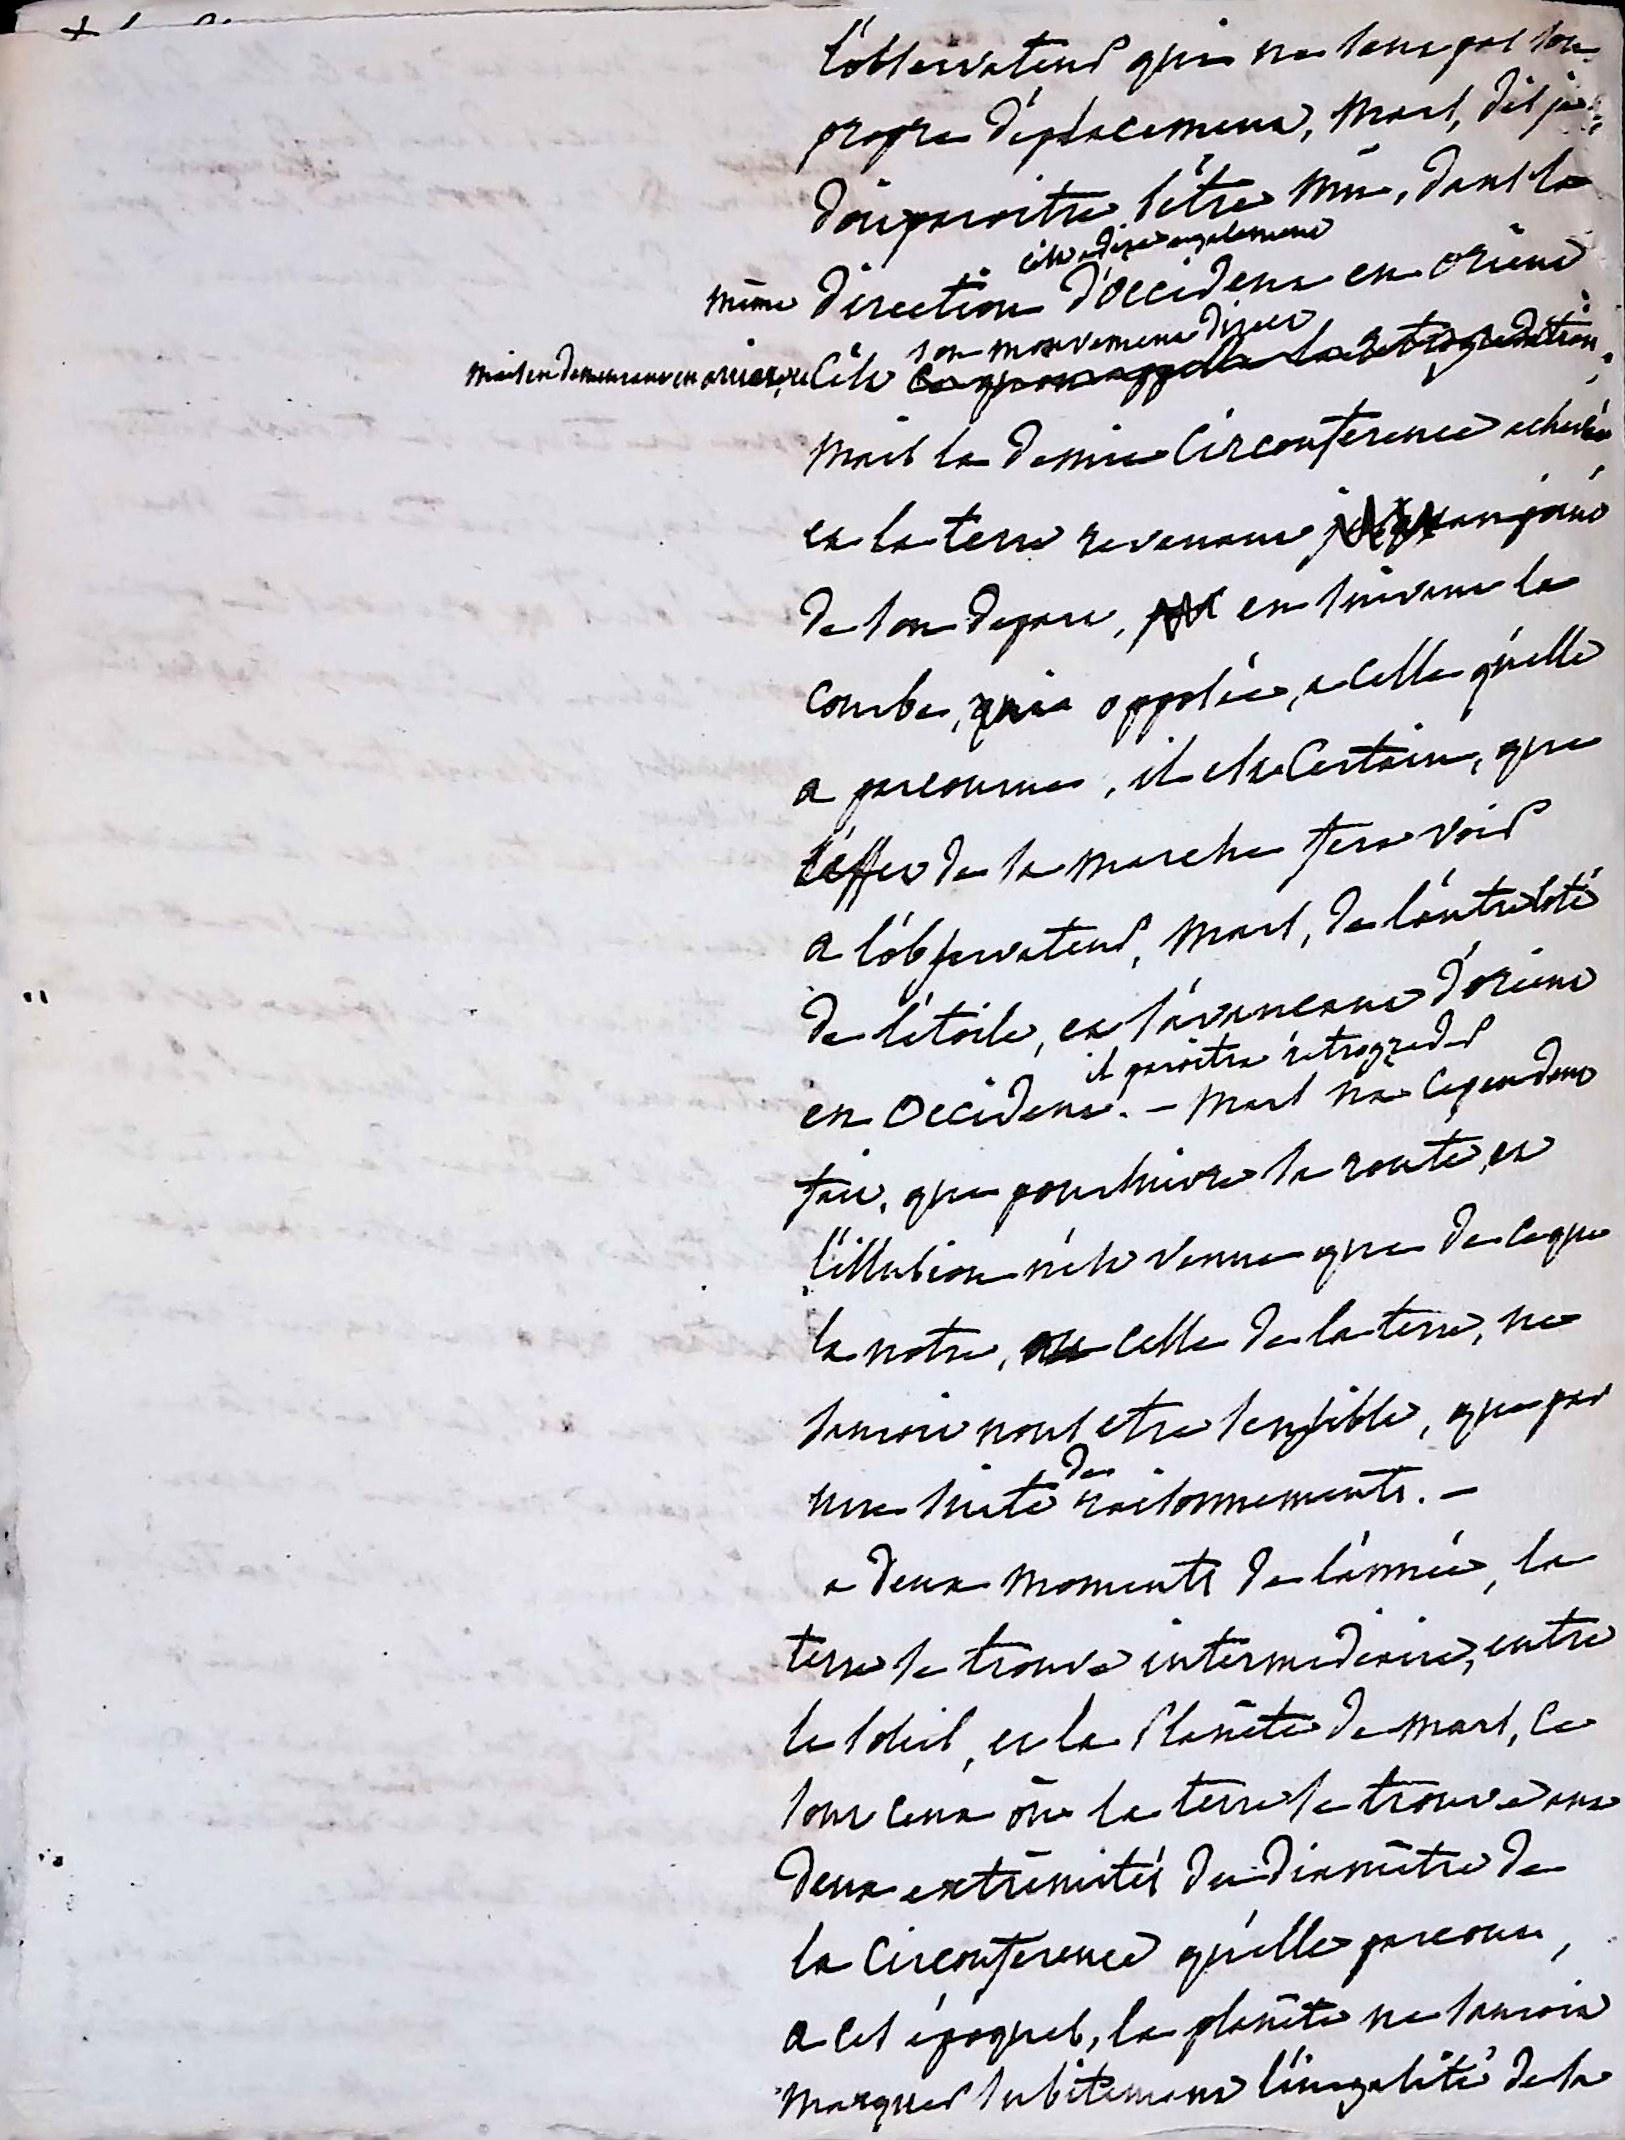 l'observateur qui ne sent pas son
propre déplacement, Mars, dis je,
doit paroitre s'être mû, dans la
c'est adire egalement
même direction d'Occident en orient
son mouvement direct
mais en demeurant en arriere, c'est ce qu'on appelle la retrogradation,
Mais la demie Circonference achevée
et la terre revenant jusqu'au point
de son depart, par en suivant la
courbe, opposée, a celle qu'elle
a parcourue, il est Certain, que
l'effet de sa marche fera voir
a l'observateur, Mars, de l'autre coté
de l'étoile, et s'avancant d'orient
il paroitra rétrograder
en Occident. – Mars na cependant
fait, que poursuivre sa route, et
l'illusion n'est venue que de ce que
la notre, ou celle de la terre, ne
sauroit nous etre sensible, que par
une suite de raisonnements. –
a deux moments de l'année, la
terre se trouve intermediaire, entre
le soleil, et la Planête de mars, ce
sont ceux où la terre se trouve aux
deux extrêmités du diamêtre de
la Circonference qu'elle parcourt,
a ces époques, la planête ne sauroit
marquer subitement l'inégalité de sa